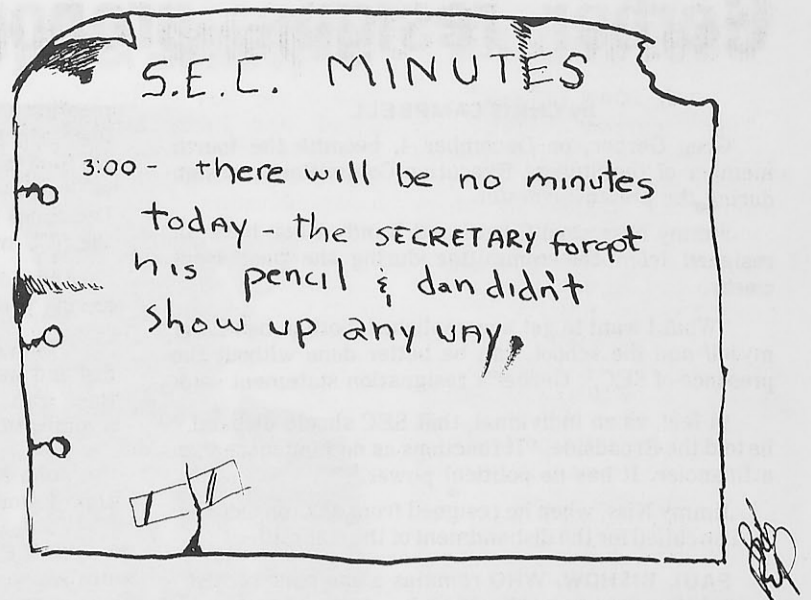 S.E.C. MINUTES
3:00 - there will be no minutes
today the SECRETARY forgot
his pencil & dan didn't
show up any way.